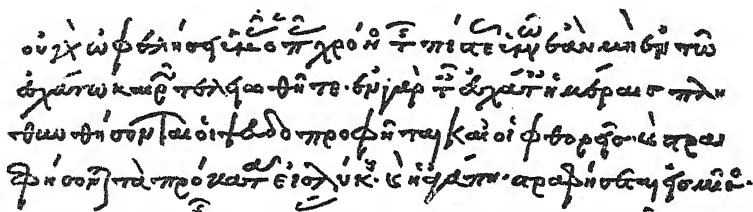 οὐ γὰρ ὠφελήσει ὑμᾶς ὁ πᾶς χρόνος τῆς πίστεως ὑμῶν ἐὰν μὴ ἐν τῷ
ἐσχάτῳ καιρῷ τελειωθῆτε· ἐν γὰρ ταῖς ἐσχάταις ἡμέραις πλη
θυνθήσονται οἱ ψευδοπροφῆται καὶ οἱ φθορεῖς· καὶ στρα
φήσονται τὰ πρόβατα εἰς λύκους· καὶ ἡ ἀγάπη στραφήσεται εἰς μῖσος·